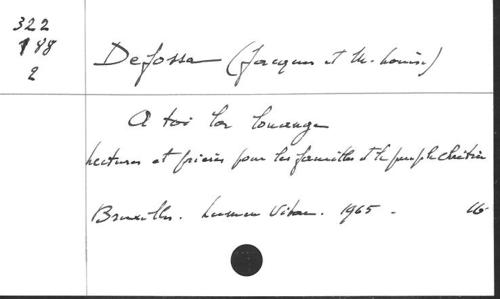 322
188
2
Defossa (Jacques et M. Louise)
A toi la louange
Lectures et prières pour les familles et le peuple chrétien
Bruxelles. Lumen Vitae. 1965 -